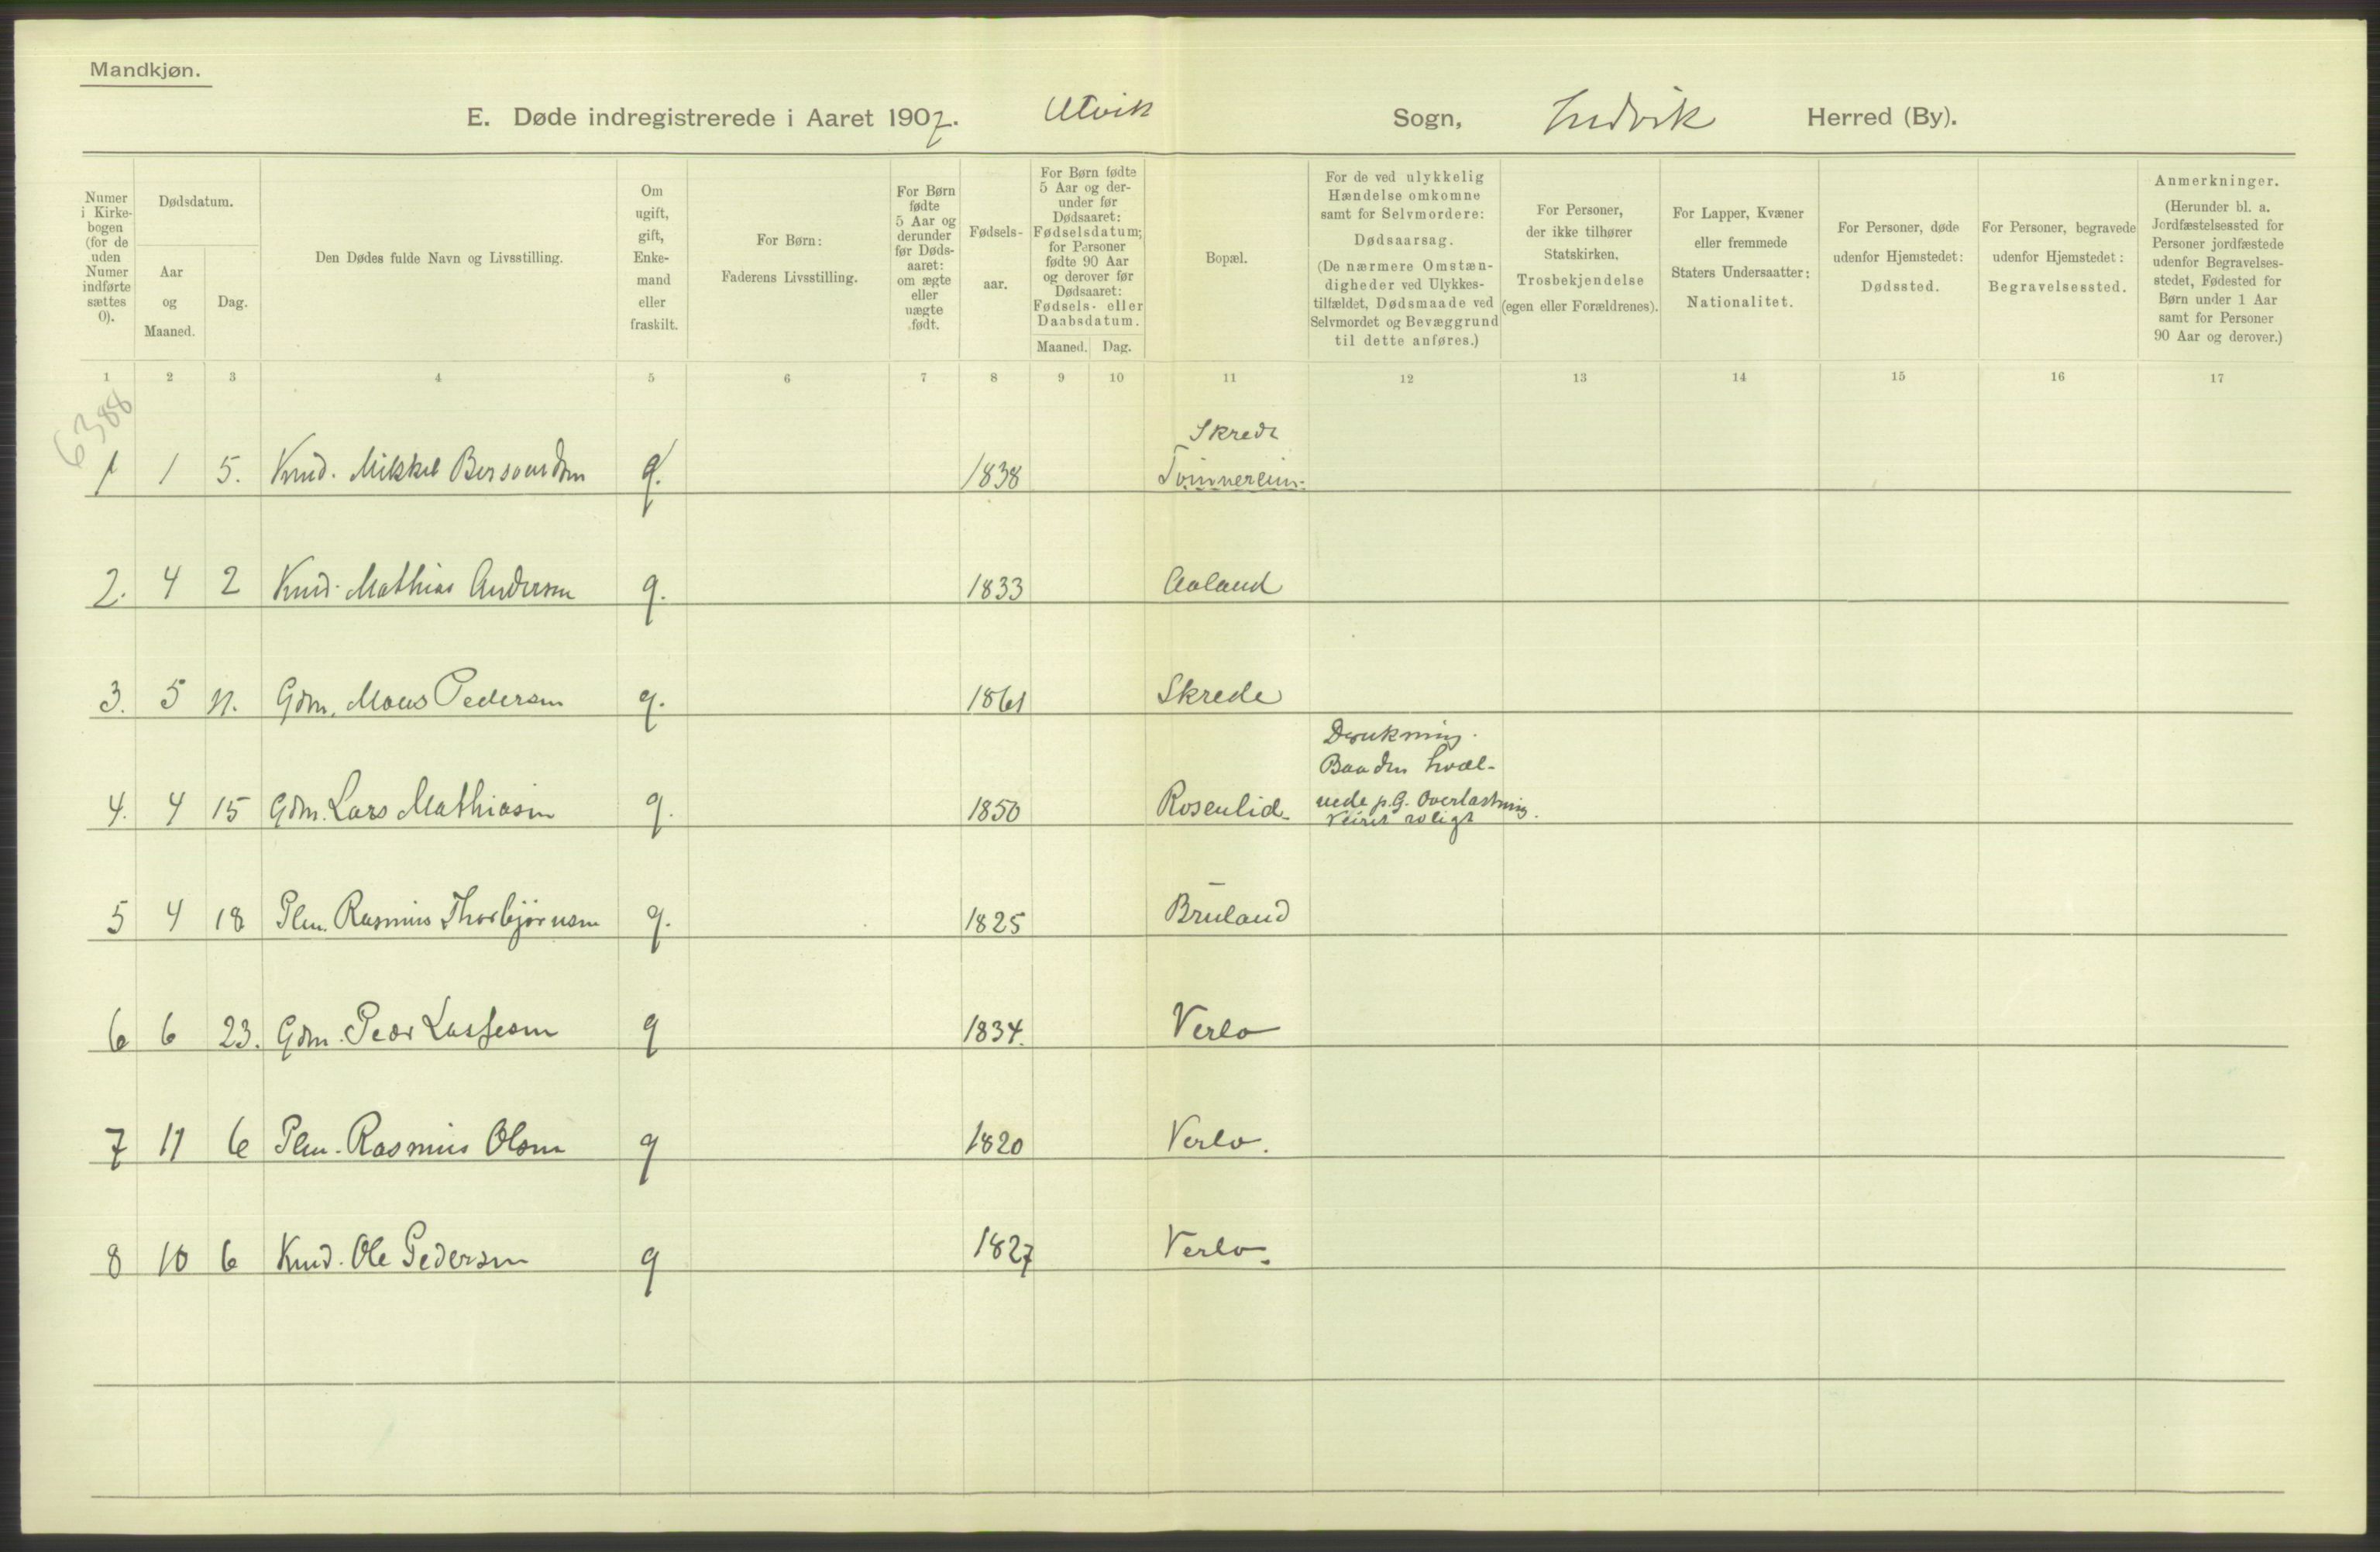 Mandkjøn.
E. Døde indregistrerede i Aaret 1907. Utvik Sogn, Indvik Herred (By).
Numer i Kirkebogen (for de uden Numer indførte sættes 0).
Dødsdatum.
Aar og Maaned.
Dag.
Den Dødes fulde Navn og Livsstilling.
Om ugift, gift, Enkemand eller fraskilt.
For Børn:
Faderens Livsstilling.
For Børn fødte 5 Aar og derunder før Dødsaaret: om ægte eller uægte født.
Fødselsaar.
For Børn fødte 5 Aar og derunder før Dødsaaret: Fødselsdatum; for Personer fødte 90 Aar og derover før Dødsaaret: Fødsels- eller Daabsdatum.
Maaned. Dag.
Bopæl.
For de ved ulykkelig Hændelse omkomne samt for Selvmordere: Dødsaarsag.
(De nærmere Omstændigheder ved Ulykkestilfældet, Dødsmaade ved Selvmordet og Bevæggrund til dette anføres.)
For Personer, der ikke tilhører Statskirken. Trosbekjendelse (egen eller Forældrenes).
For Lapper, Kvæner eller fremmede Staters Undersaatter: Nationalitet.
For Personer, døde udenfor Hjemstedet: Dødssted.
For Personer, begravede udenfor Hjemstedet: Begravelsessted.
Anmerkninger.
(Herunder bl. a. Jordfæstelsessted for Personer jordfæstede udenfor Begravelsesstedet, Fødested for Børn under 1 Aar samt for Personer 90 Aar og derover.)
1 2 3 4 5 6 7 8 9 10 11 12 13 14 15 16 17
6388
Skrede
1 1 5. Knud. Mikkel g. 1838
2. 4 2 Knud. Mathias Andersen g. 1833 Aaland
3. 5 11. Gdm. Mons Pedersen g. 1861 Skrede
Drukning.
Baaden hvæl-
4. 4 15 Gdm. Lars Mathiasen g. 1850 Rosenlid nede p.G. Overlastning.
Veiret roligt
5 4 18 Plm. Rasmus Thorbjørnsen g. 1825 Bruland
6 6 23. Gdm. Peder Lassesen g 1834. Verlo
7 11 6 Plm. Rasmus Olsen g 1820 Verlo.
8 10 6 Knud. Ole Pedersen g 1827 Verlo.